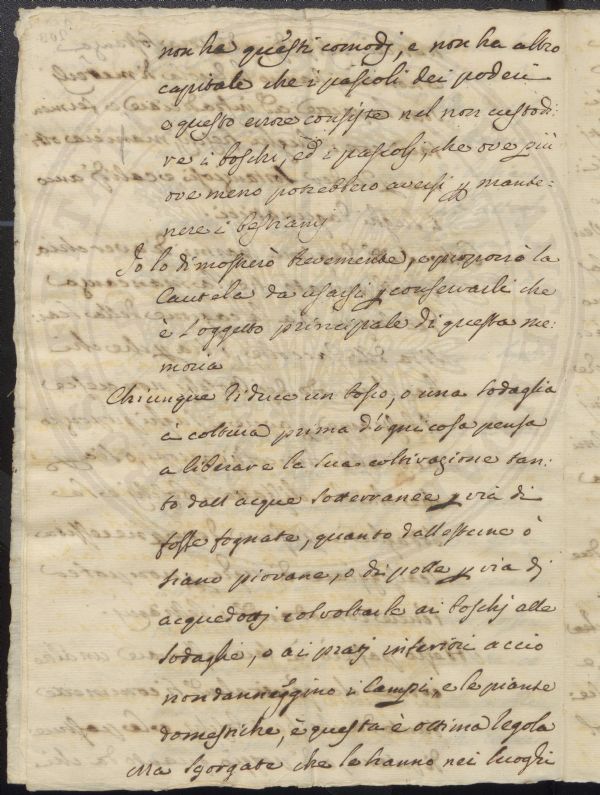 non ha questi comodj, e non ha altro
capitale che i pascoli dei poderi
e questo errore consiste nel non custodi:
re i boschi, ed i pascolj, che ove più
ove meno potrebbero aversi p mante:
nere i bestiamj
Io lo dimostrerò brevemente, e proporrò la
Cautela da usarsi p conservarli che
è l'oggetto principale di questa me:
moria
Chiunque riduce un bosco, o una sodaglia
a coltura prima d'ogni cosa pensa
a liberare la sua coltivazione tan:
to dall'acque sotterranee p via di
fosse fognate, quanto dall'esterne ò
siano piovane, o di polle p via di
acquedottj col voltarle ai boschj alle
sodaglie, o ai pratj inferiori acciò
non danneggino i Campi, e le piante
domestiche, e questa è ottima regola
Ma sgorgate che le hanno nei luoghi